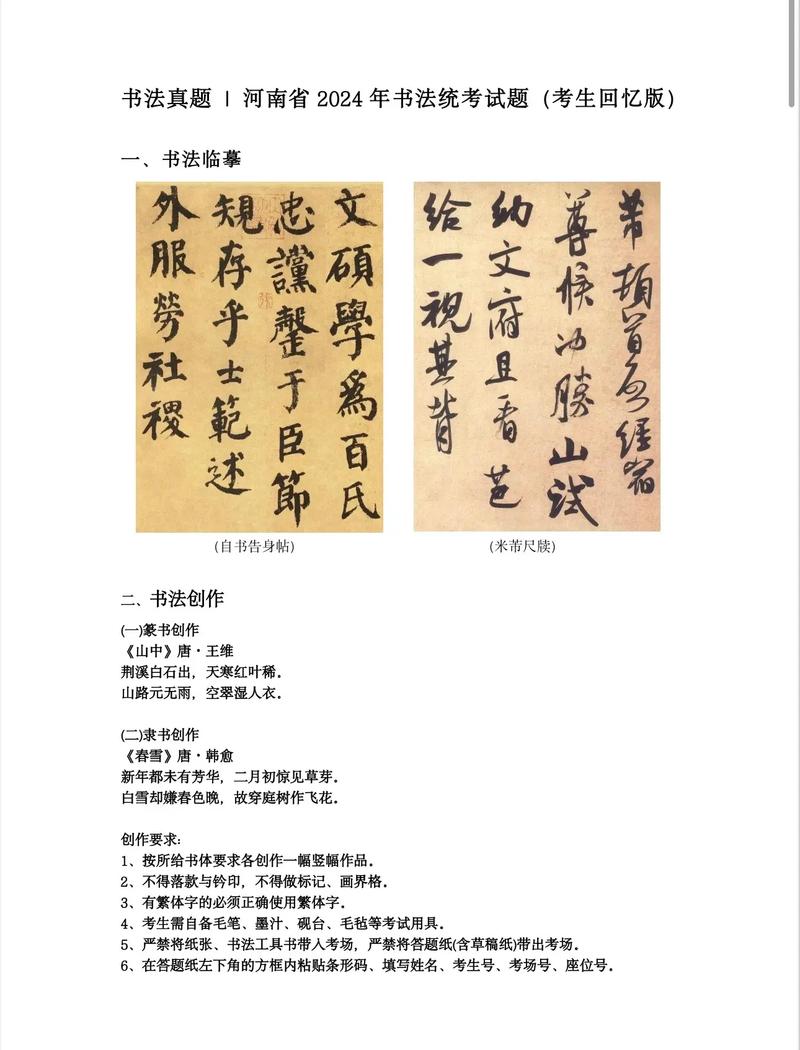 书法真题 | 河南省 2024 年书法统考试题（考生回忆版）
一、书法临摹
文碩學爲百氏
忠讜罄于臣節
規存乎士範述
外服勞社稷
芾頓首啟經宿
尊候沖勝山試
納文府且看芭
給一視其背
(自书告身帖)
(米芾尺牍)
二、书法创作
(一)篆书创作
《山中》唐·王维
荆溪白石出，天寒红叶稀。
山路元无雨，空翠湿人衣。
(二)隶书创作
《春雪》唐·韩愈
新年都未有芳华，二月初惊见草芽。
白雪却嫌春色晚，故穿庭树作飞花。
创作要求:
1、按所给书体要求各创作一幅竖幅作品。
2、不得落款与钤印，不得做标记、画界格。
3、有繁体字的必须正确使用繁体字。
4、考生需自备毛笔、墨汁、砚台、毛毡等考试用具。
5、严禁将纸张、书法工具书带入考场，严禁将答题纸(含草稿纸)带出考场。
6、在答题纸左下角的方框内粘贴条形码、填写姓名、考生号、考场号、座位号。